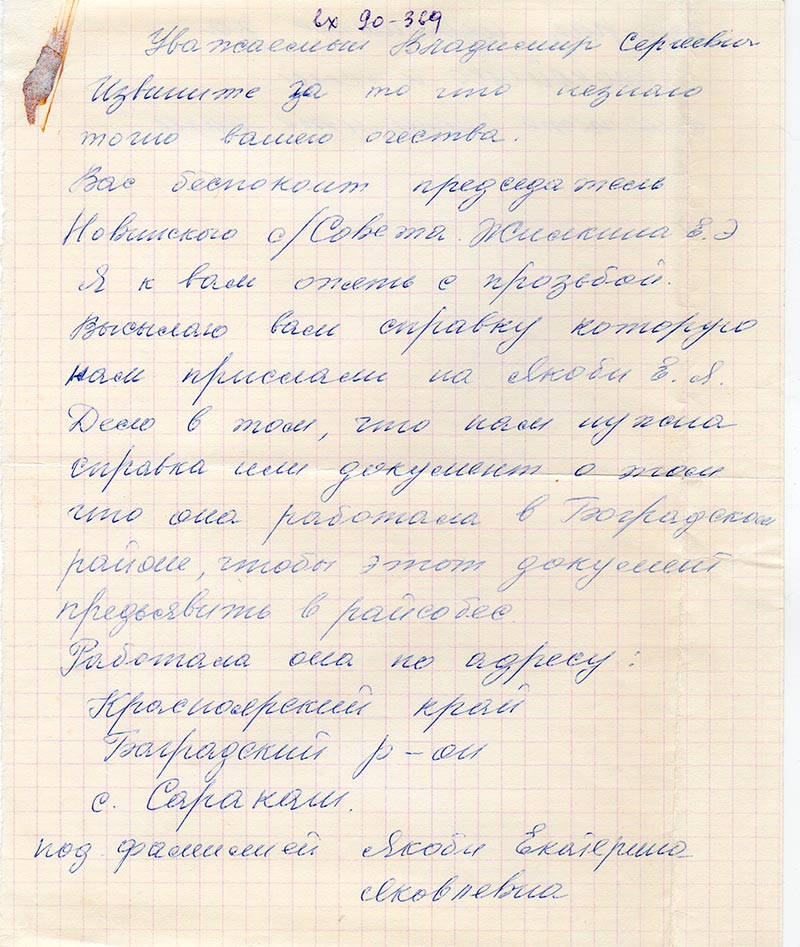 вх 90-369
Уважаемый Владимир Сергеевич
Извините за то что незнаю
точно вашего очества.
Вас беспокоит председатель
Новинского с/Совета. Жилкина Е.Э
Я к вам опять с прозьбой.
Высылаю вам справку которую
нам прислали на Якоби Е.Я.
Дело в том, что нам нужна
справка или документ о том
что она работала в Боградском
районе, чтобы этот документ
предьявить в райсобес.
Работала она по адресу:
Красноярский край
Боградский р-он
с. Саракаш.
под фамилией Якоби Екатерина
Яковлевна